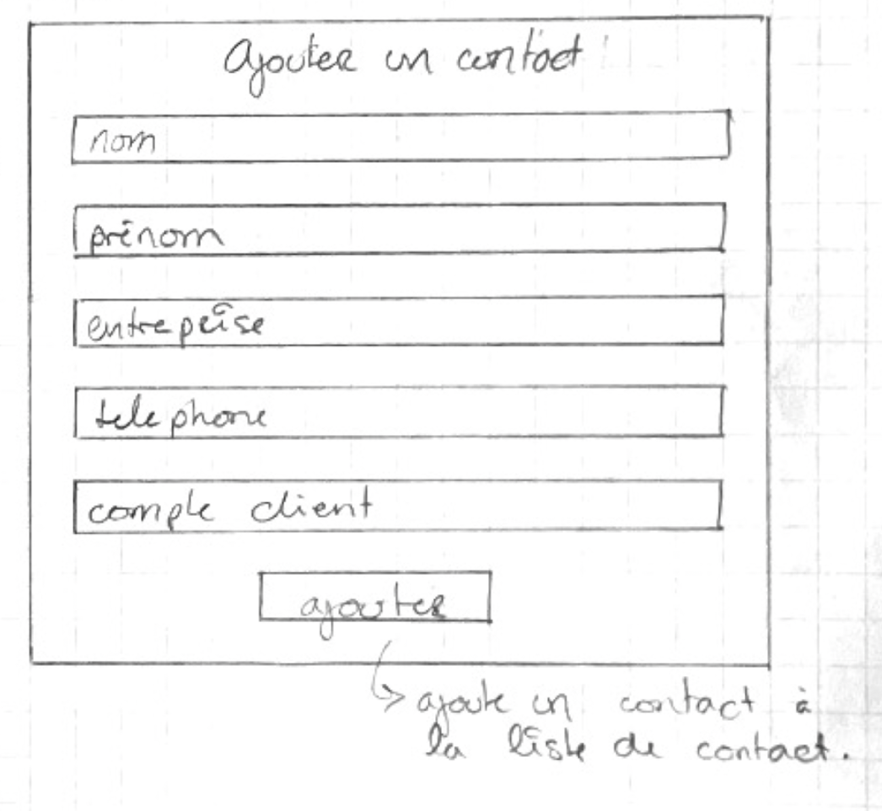 Ajouter un contact
nom
prénom
entreprise
telephone
compte client
ajouter
ajoute un contact à
la liste de contact.